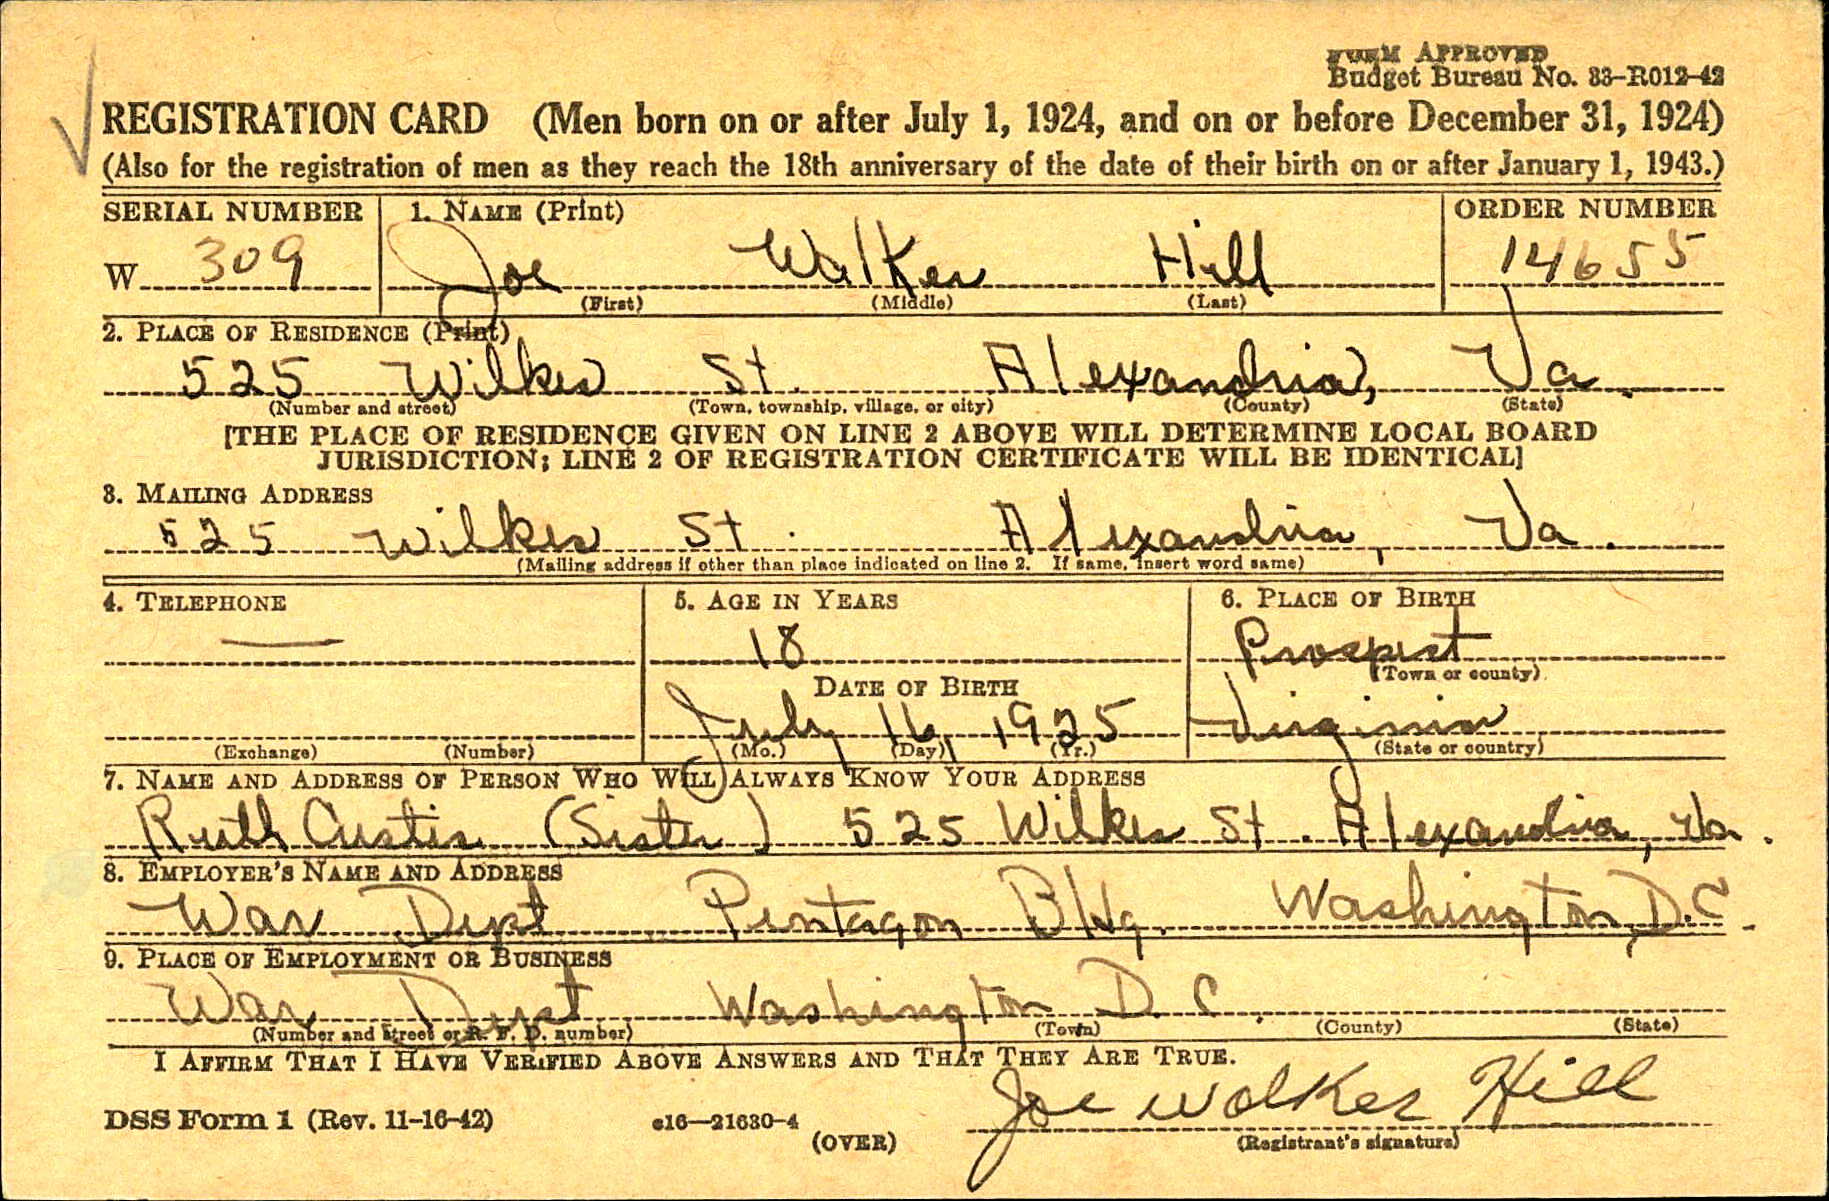 FORM APPROVED
Budget Bureau No. 33-R012-42
REGISTRATION CARD (Men born on or after July 1, 1924, and on or before December 31, 1924)
(Also for the registration of men as they reach the 18th anniversary of the date of their birth on or after January 1, 1943.)
SERIAL NUMBER 1. NAME (Print) ORDER NUMBER
W 309 Joe Walker Hill 14655
(First) (Middle) (Last)
2. PLACE OF RESIDENCE (Print)
525 Wilkes St. Alexandria, Va.
(Number and street) (Town, township, village, or city) (County) (State)
[THE PLACE OF RESIDENCE GIVEN ON LINE 2 ABOVE WILL DETERMINE LOCAL BOARD
JURISDICTION; LINE 2 OF REGISTRATION CERTIFICATE WILL BE IDENTICAL]
3. MAILING ADDRESS
525 Wilkes St. Alexandria, Va.
(Mailing address if other than place indicated on line 2. If same, insert word same)
4. TELEPHONE 5. AGE IN YEARS 6. PLACE OF BIRTH
— 18 Prospect
(Town or county)
DATE OF BIRTH
July 16, 1925 Virginia
(Exchange) (Number) (Mo.) (Day) (Yr.) (State or country)
7. NAME AND ADDRESS OF PERSON WHO WILL ALWAYS KNOW YOUR ADDRESS
Ruth Custis (Sister) 525 Wilkes St. Alexandria, Va.
8. EMPLOYER'S NAME AND ADDRESS
War Dept Pentagon Bldg. Washington, D.C.
9. PLACE OF EMPLOYMENT OR BUSINESS
War Dept Washington D.C.
(Number and street or R. F. D. number) (Town) (County) (State)
I AFFIRM THAT I HAVE VERIFIED ABOVE ANSWERS AND THAT THEY ARE TRUE.
Joe Walker Hill
DSS Form 1 (Rev. 11-16-42) c16—21630-4 (OVER) (Registrant's signature)